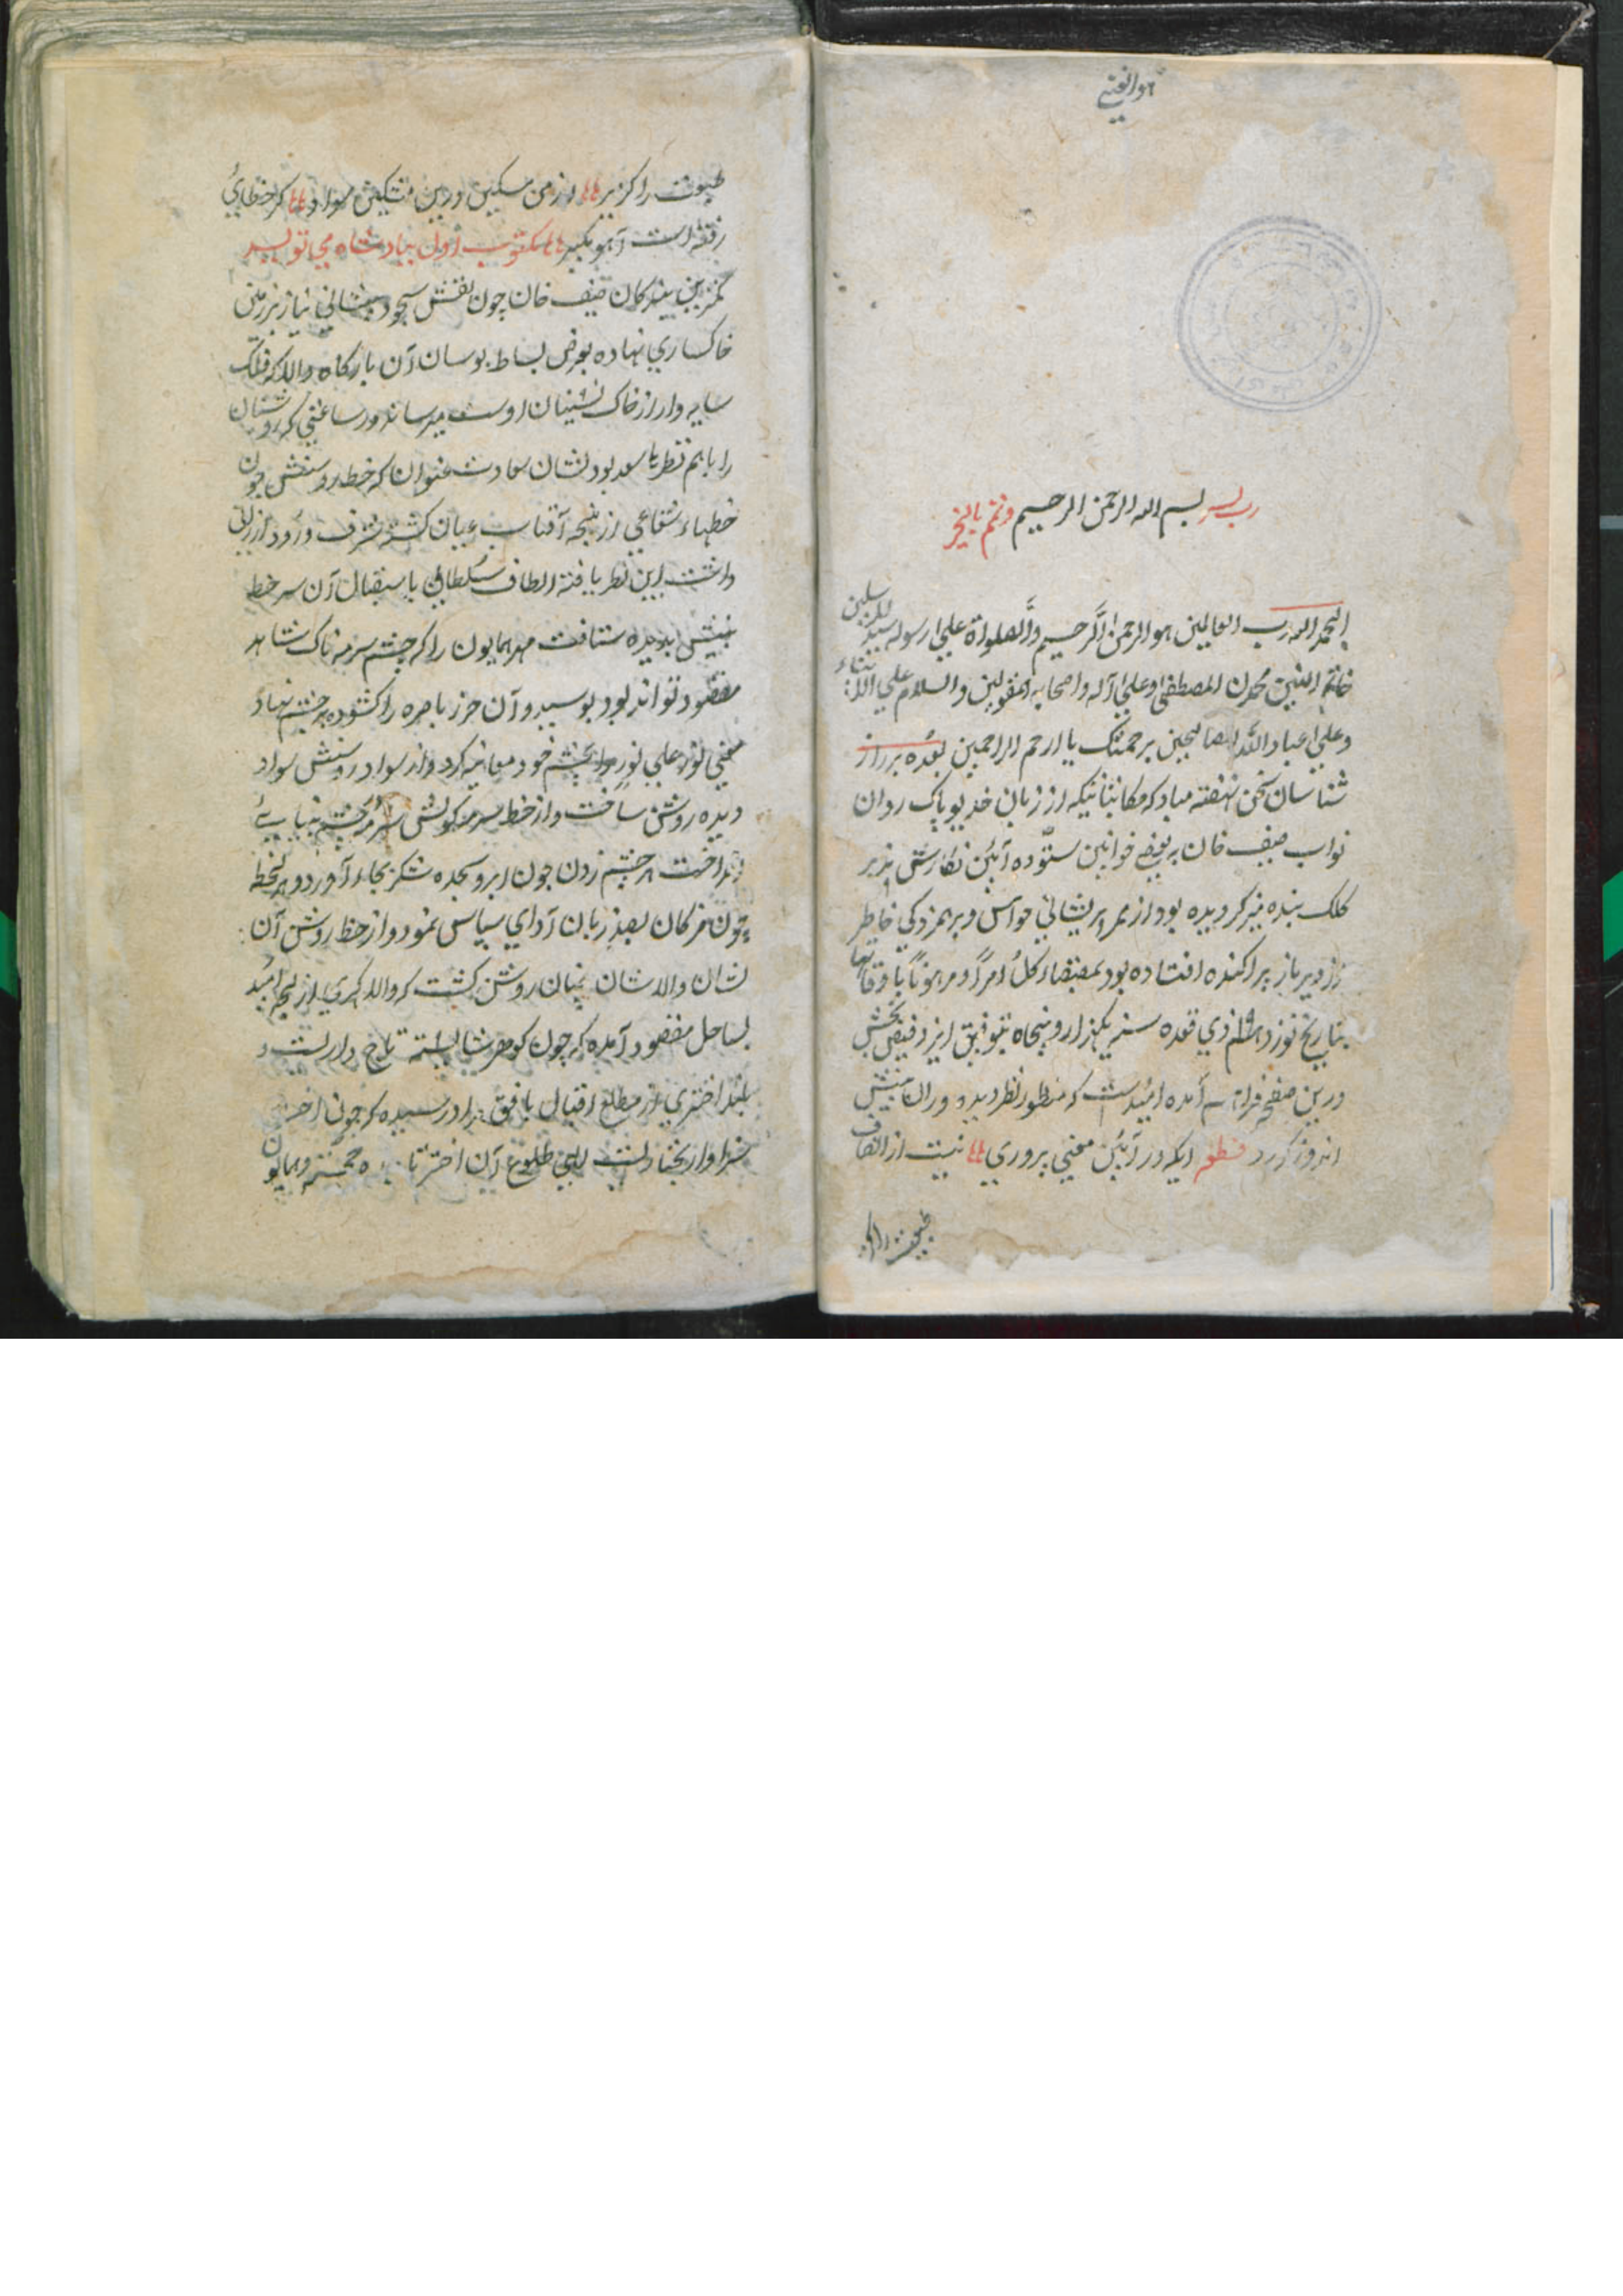 هوالغنی
رب یسر بسم الله الرحمن الرحیم وتمم بالخیر
الحمد لله رب العالمین هو الرحمن الرحیم والصلواة علی رسوله سید المرسلین
خاتم النبین محمدن المصطفی وعلی آله واصحابه المقبولین والسلام علی
وعلی عباد الله الصالحین برحمتک یا ارحم الراحمین بعده بر راز
شناسان سخن نهفته مباد که مکاتباتیکه از زبان خدیو پاک روان
نواب سیف خان به بعضی خوانین ستوده آئین نگارش پذیر
کلک بنده منیر کردیده بود از ممر پریشانی حواس و برهمزدکی خاطر
از دیر باز پراکنده افتاده بود بمقتضاء کل امرا ومرهونا باوقاتها
بتاریخ نوزدهم ۱۹ ذی قعده سنه یکهزار و پنجاه بتوفیق ایزد فیض بخش
درین صفحه فراهم آمده امید است که منظور نظر دیده وران بینش
اندوز کردد قطعه ایکه در آئین معنی پروری نیست از انصاف
طبعت را کزیر از من مسکین درین کر خطایی
رفته است آهو بکیر مکتوب اول ببادشاه می نویسد
کمترین بندکان سیف خان چون نقش سجود پیشانی نیاز بر زمین
خاکساری نهاده بعرض بساط بوسان آن بارکاه والا که فلک
سایه وار از خاک نشینان اوست میرساند در ساعتی که روشنان
را باهم نظرها سعد بود نشان سعادت عنوان که خط روشنش چون
خطهاء شعاعی از پنجه آفتاب عیان کشته شرف ورود ارزانی
داشت این نظر یافته الطاف سلطانی باستقبال آن سر خط
بینش بدیده شتافت مهر همایون را که چشم سرمه ناک شاهد
مقصود تواند بود بوسید و آن حرز باصره را کشوده بر چشم نهاد
معنی نور علی نور را بچشم خود معاینه کرد و از سواد روشنش سواد
دیده روشن ساخت و از خط سرمه کونش سرمه بچشم بینایی
انداخت هر چشم زدن چون ابرو سجده شکر بجاء آورد و هر لحظه
چون مژکان بصد زبان آدای سپاس نمود و از خط روشن آن
نشان والاشان چنان روشن کشت که والا کهری از لجه امید
بساحل مقصود آمده که چون کوهر شایسته تاج دارلیست و
بلند اختری از مطلع اقبال بافق در رسیده که چون اختر
سزاوار طلوع آن اختر خجسته و همایون
طبعت را کزیر